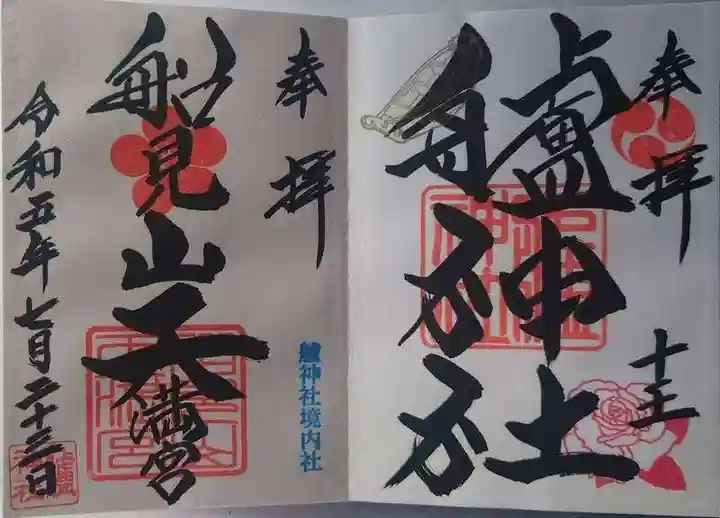 奉拝
艫神社
奉拝
船見山天満宮
艫神社境内社
令和五年七月二十三日